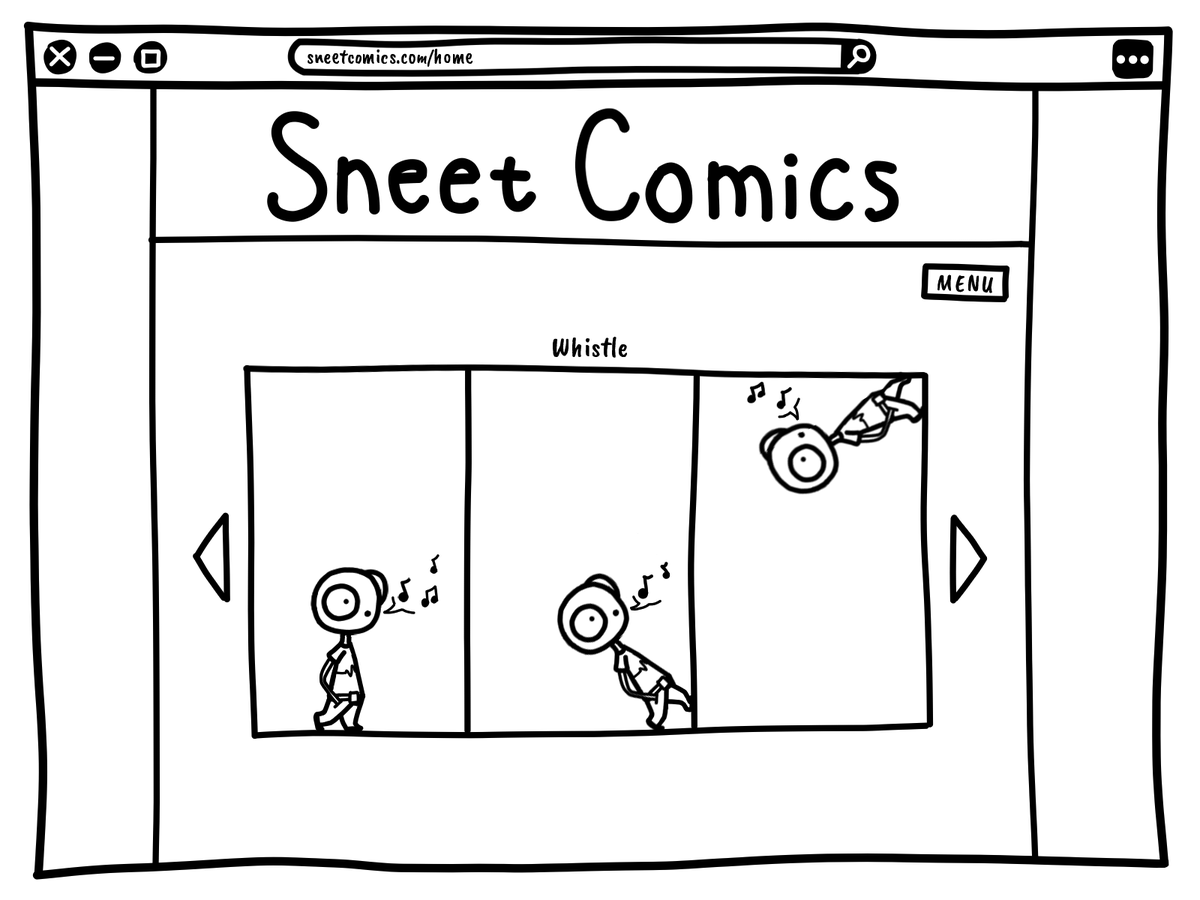 sneetcomics.com/home
Sneet Comics
MENU
Whistle